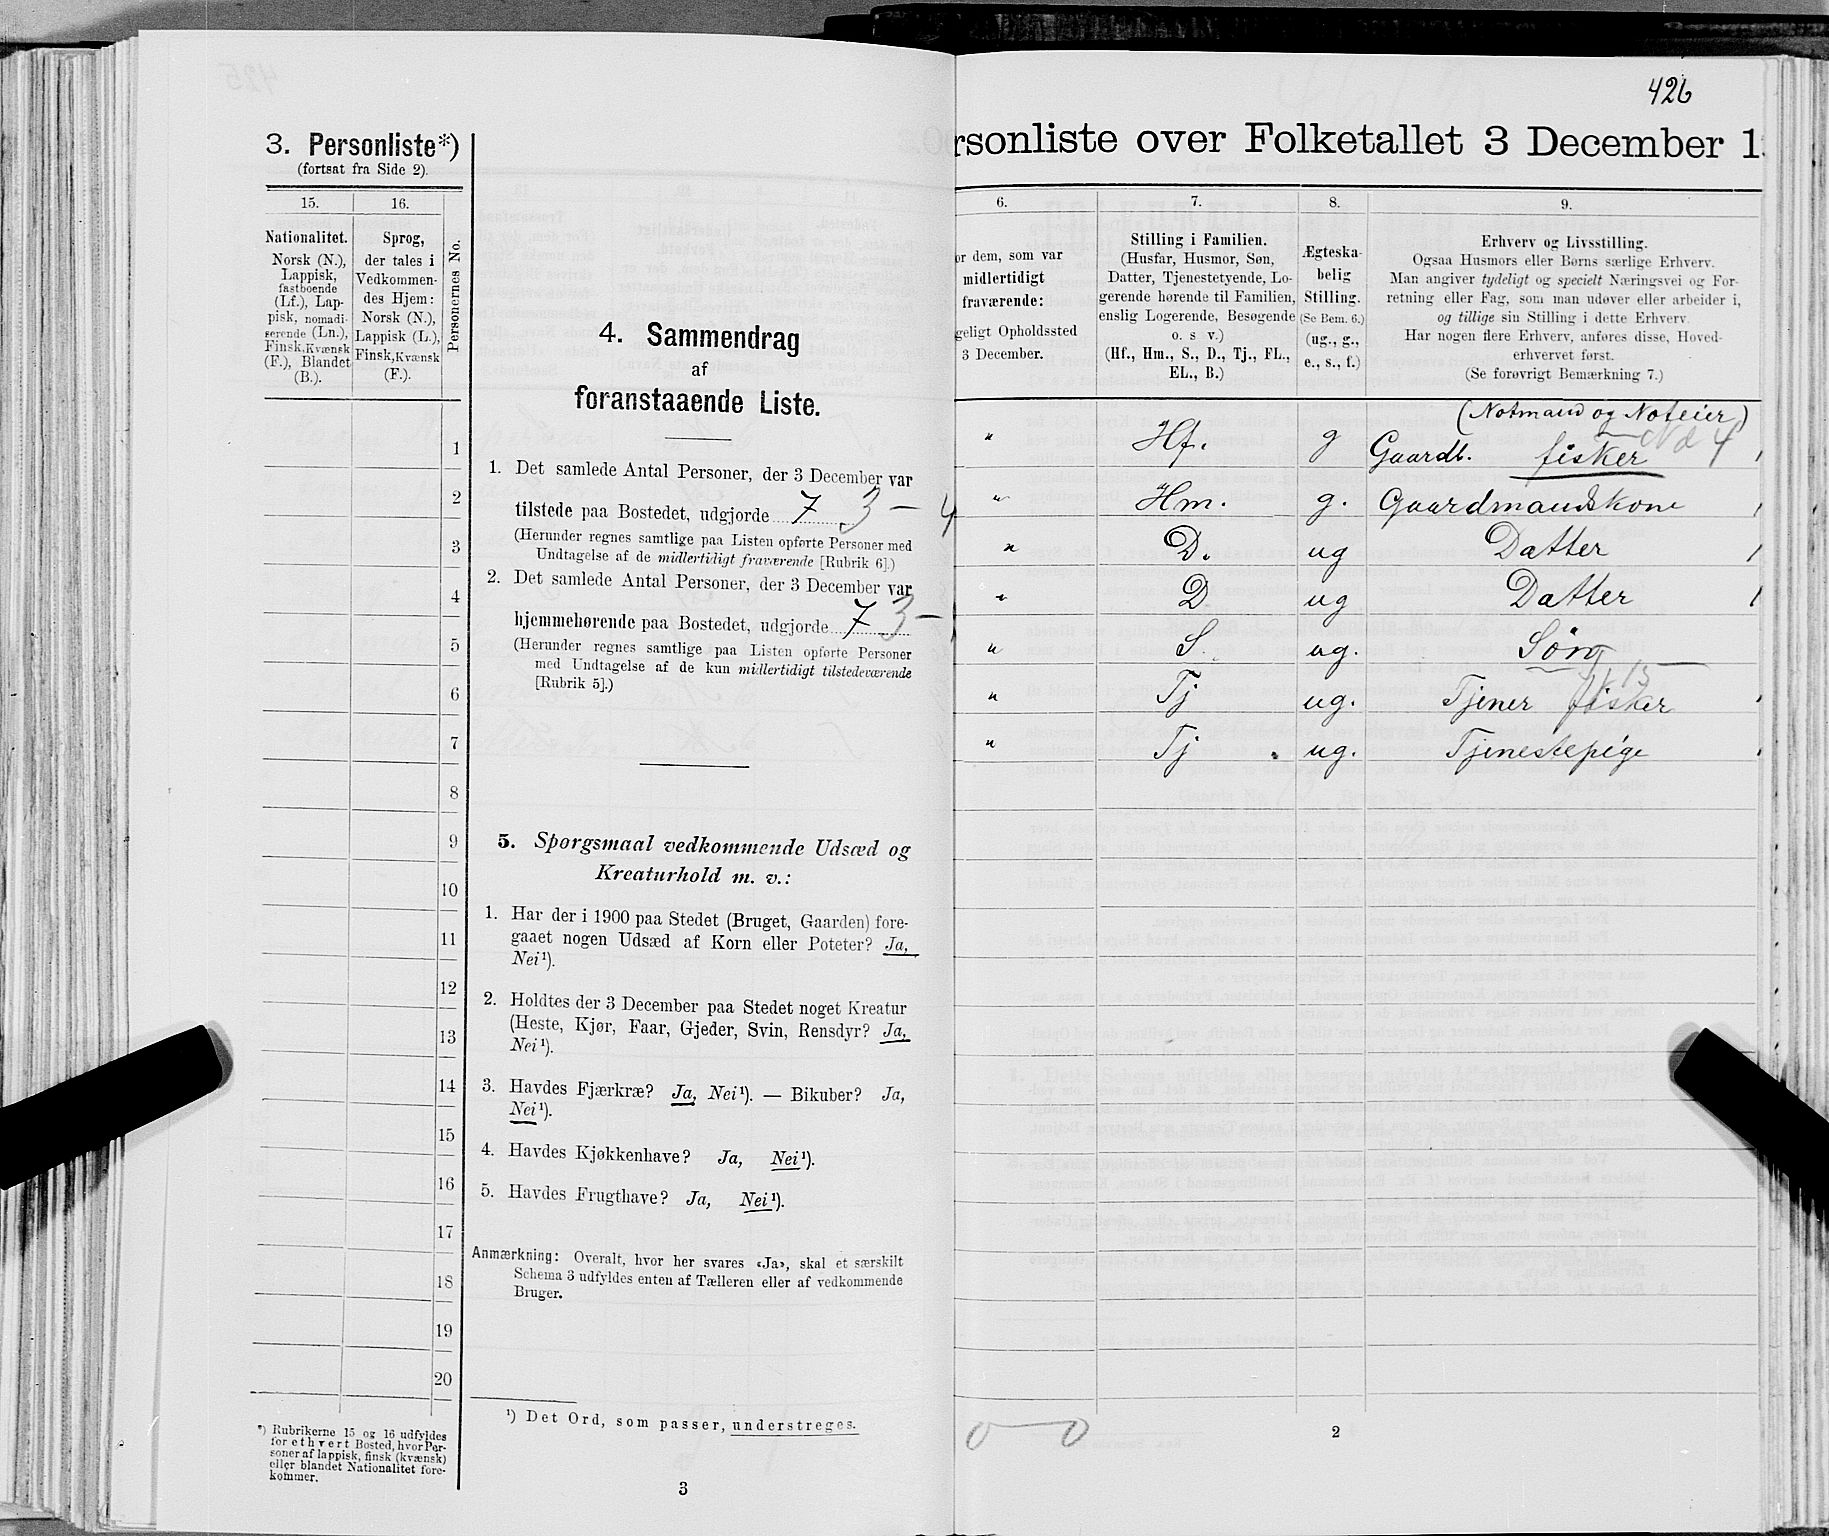 426
3. Personliste*)
(fortsat fra Side 2).
15.
16.
Personernes No.
Nationalitet.
Norsk (N.),
Lappisk,
fastboende
(Lf.), Lap-
pisk, nomadi-
serende (Ln.),
Finsk, Kvænsk
(F.), Blandet
(B.).
Sprog,
der tales i
Vedkommen-
des Hjem:
Norsk (N.),
Lappisk (L.),
Finsk, Kvænsk
(F.).
1
2
3
4
5
6
7
8
9
10
11
12
13
14
15
16
17
18
19
20
*) Rubrikerne 15 og 16 udfyldes
for ethvert Bosted, hvor Per-
soner af lappisk, finsk (kvænsk)
eller blandet Nationalitet fore-
kommer.
4. Sammendrag
af
foranstaaende Liste.
1. Det samlede Antal Personer, der 3 December var
tilstede paa Bostedet, udgjorde 7 3 – 4
(Herunder regnes samtlige paa Listen opførte Personer med
Undtagelse af de midlertidigt fraværende [Rubrik 6].)
2. Det samlede Antal Personer, der 3 December var
hjemmehørende paa Bostedet, udgjorde 7 3 –
(Herunder regnes samtlige paa Listen opførte Personer
med Undtagelse af de kun midlertidigt tilstedeværende
[Rubrik 5].)
5. Spørgsmaal vedkommende Udsæd og
Kreaturhold m. v.:
1. Har der i 1900 paa Stedet (Bruget, Gaarden) fore-
gaaet nogen Udsæd af Korn eller Poteter? Ja,
Nei¹).
2. Holdtes der 3 December paa Stedet noget Kreatur
(Heste, Kjør, Faar, Gjeder, Svin, Rensdyr? Ja,
Nei¹).
3. Havdes Fjærkræ? Ja, Nei¹). — Bikuber? Ja,
Nei¹).
4. Havdes Kjøkkenhave? Ja, Nei¹).
5. Havdes Frugthave? Ja, Nei¹).
Anmærkning: Overalt, hvor her svares «Ja», skal et særskilt
Schema 3 udfyldes enten af Tælleren eller af vedkommende
Bruger.
¹) Det Ord, som passer, understreges.
3
rsonliste over Folketallet 3 December 1
6.
7.
8.
9.
or dem, som var
midlertidigt
fraværende:
geligt Opholdssted
3 December.
Stilling i Familien.
(Husfar, Husmor, Søn,
Datter, Tjenestetyende, Lo-
gerende hørende til Familien,
enslig Logerende, Besøgende
o. s v.)
(Hf., Hm., S., D., Tj., FL.,
EL., B.)
Ægteska-
belig
Stilling.
(Se Bem. 6.)
(ug., g.,
e., s., f.)
Erhverv og Livsstilling.
Ogsaa Husmors eller Børns særlige Erhverv.
Man angiver tydeligt og specielt Næringsvei og For-
retning eller Fag, som man udøver eller arbeider i,
og tillige sin Stilling i dette Erhverv.
Har nogen flere Erhverv, anføres disse, Hoved-
erhvervet først.
(Se forøvrigt Bemærkning 7.)
(Notmand og Noteier)
" Hf. g Gaardb. fisker 4
" Hm. g. Gaardmandskone
" D. ug Datter
" D ug Datter
" S. ug. Søn
" Tj ug. Tjener fisker
" Tj ug. Tjenestepige
0 — 0
2